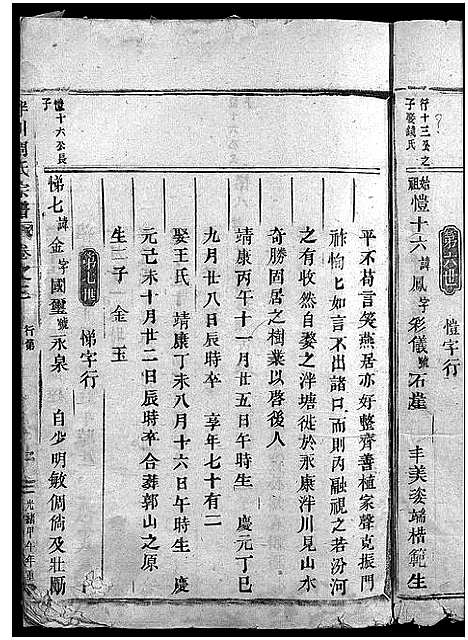 行十三公之
子娶錢氏
始祖愷十六諱鳳字彩儀號石崖 丰美姿端楷範生
第六世 愷字行
平不苟言笑燕居亦好整齊善植家聲克振門
祚恂恂如言不出諸口而則內融視之若汾河
之有收然自婺之泮塘徙於永康泮川見山水
奇勝固居之樹業以啓後人
靖康丙午十一月廿五日午時生 慶元丁巳
九月廿八日辰時卒 享年七十有二
娶王氏 靖康丁未八月十六日午時生 慶
元己未十月廿二日辰時卒合葬郭山之原
生一子 金玉
第七世 悌字行
愷十六公長
子
悌七諱金字國璽號永泉 自少明敏倜倘及壯勵
川周氏宗譜 卷之
行第
光緒甲午年重